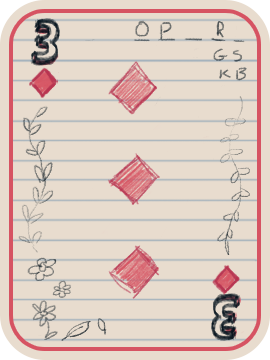 3
O P _ R _
G S
K B
3